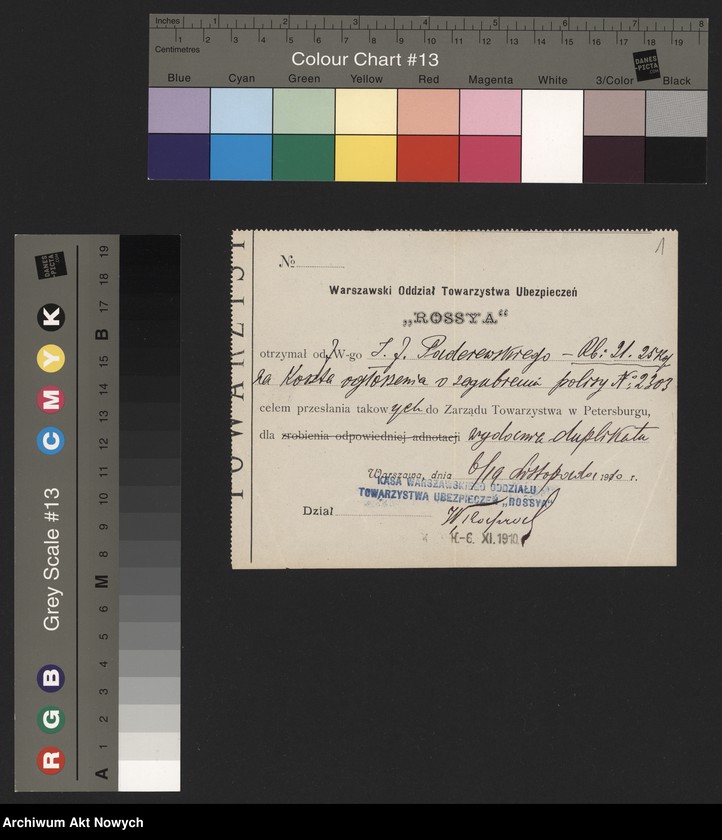 inches 1 2 3 4 5 6 7 8
Centimetres 1 2 3 4 5 6 7 8 9 10 11 12 13 14 15 16 17 18 19
Colour Chart #13
DANES-PICTA.COM
Blue Cyan Green Yellow Red Magenta White 3/Color Black
Grey Scale #13
DANES-PICTA.COM
R G B C M Y K
A 1 2 3 4 5 6 M 8 9 10 11 12 13 14 15 B 17 18 19
1
TOWARZYST
№
Warszawski Oddział Towarzystwa Ubezpieczeń
„ROSSYA“
otrzymał od W-go I. J. Paderewskiego – Rb: 21. 25 Kop
na Koszta ogłoszenia o zagubieniu polisy №: 2303
celem przesłania takowych do Zarządu Towarzystwa w Petersburgu,
dla zrobienia odpowiedniej adnotacji wydania duplikatu
Warszawa, dnia 6/19 Listopada 1910 r.
KASA WARSZAWSKIEGO ODDZIAŁU
TOWARZYSTWA UBEZPIECZEŃ „ROSSYA“
Dział
-6. XI. 1910
Archiwum Akt Nowych